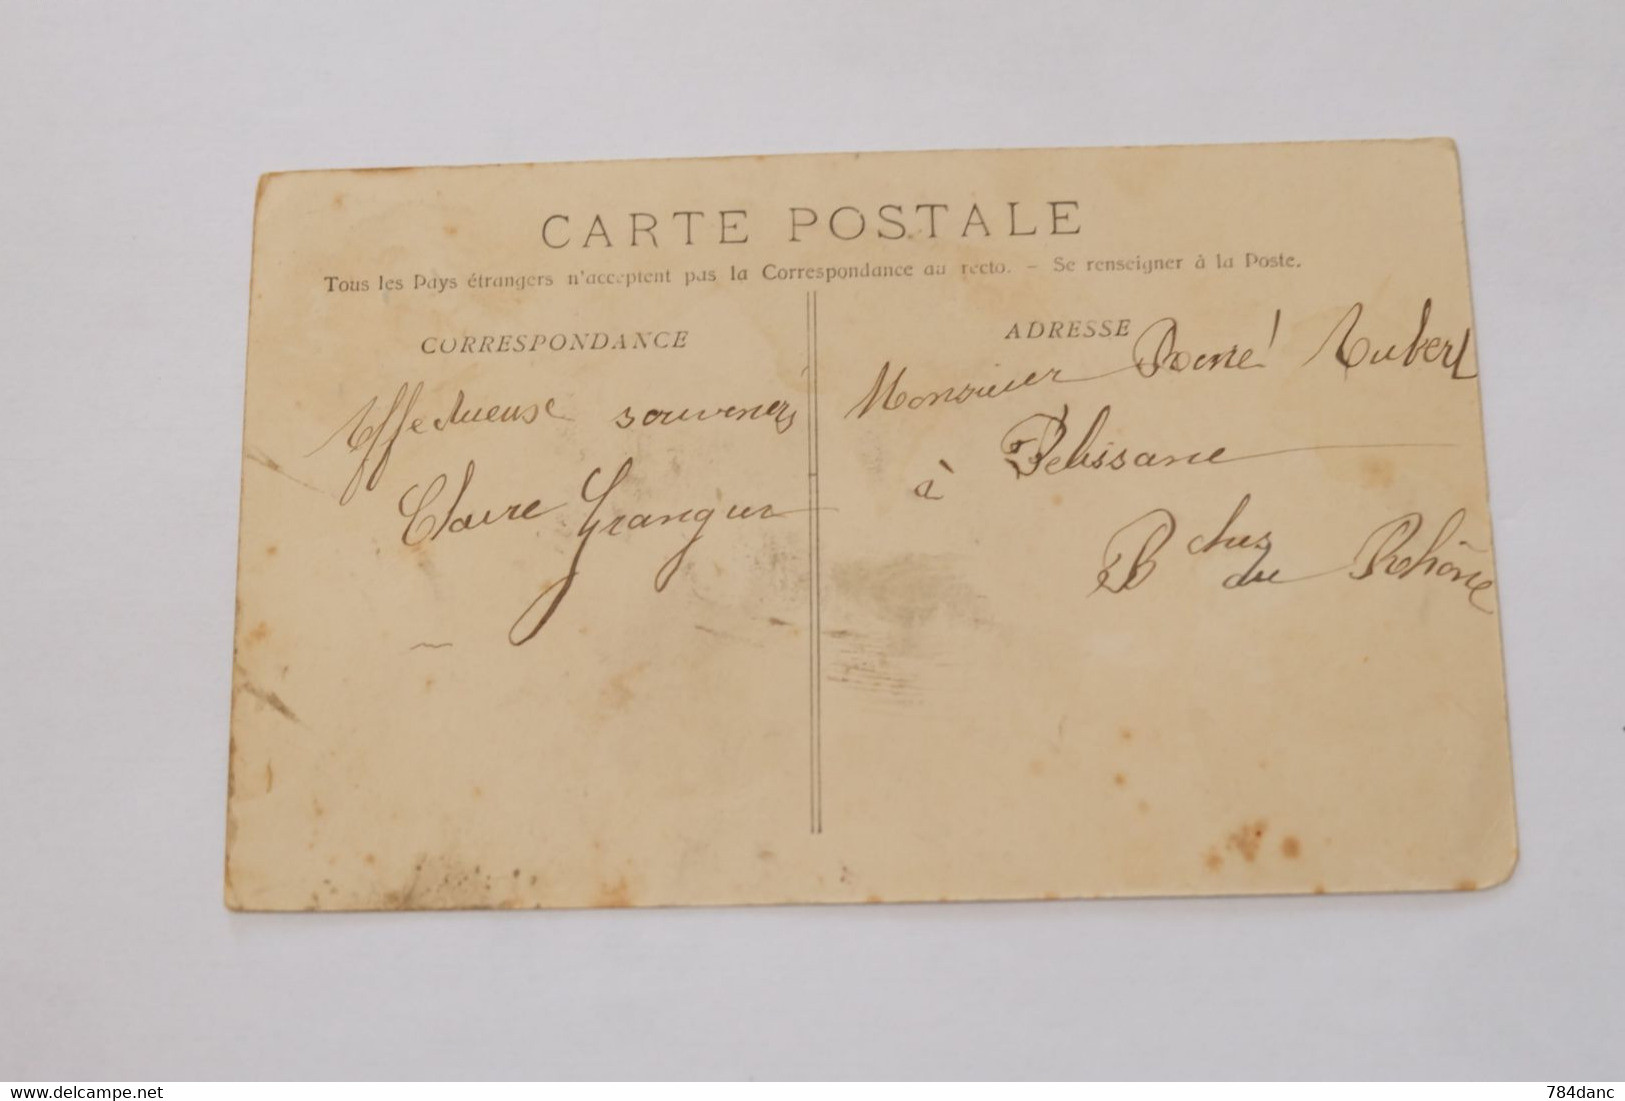 CARTE POSTALE
Tous les Pays étrangers n'acceptent pas la Correspondance au recto. – Se renseigner à la Poste.
CORRESPONDANCE
Affectueuse souvenirs
Claire
ADRESSE
Monsieur René Aubert
à Pelissane
B ches du Rhône
delcampe.net
784danc